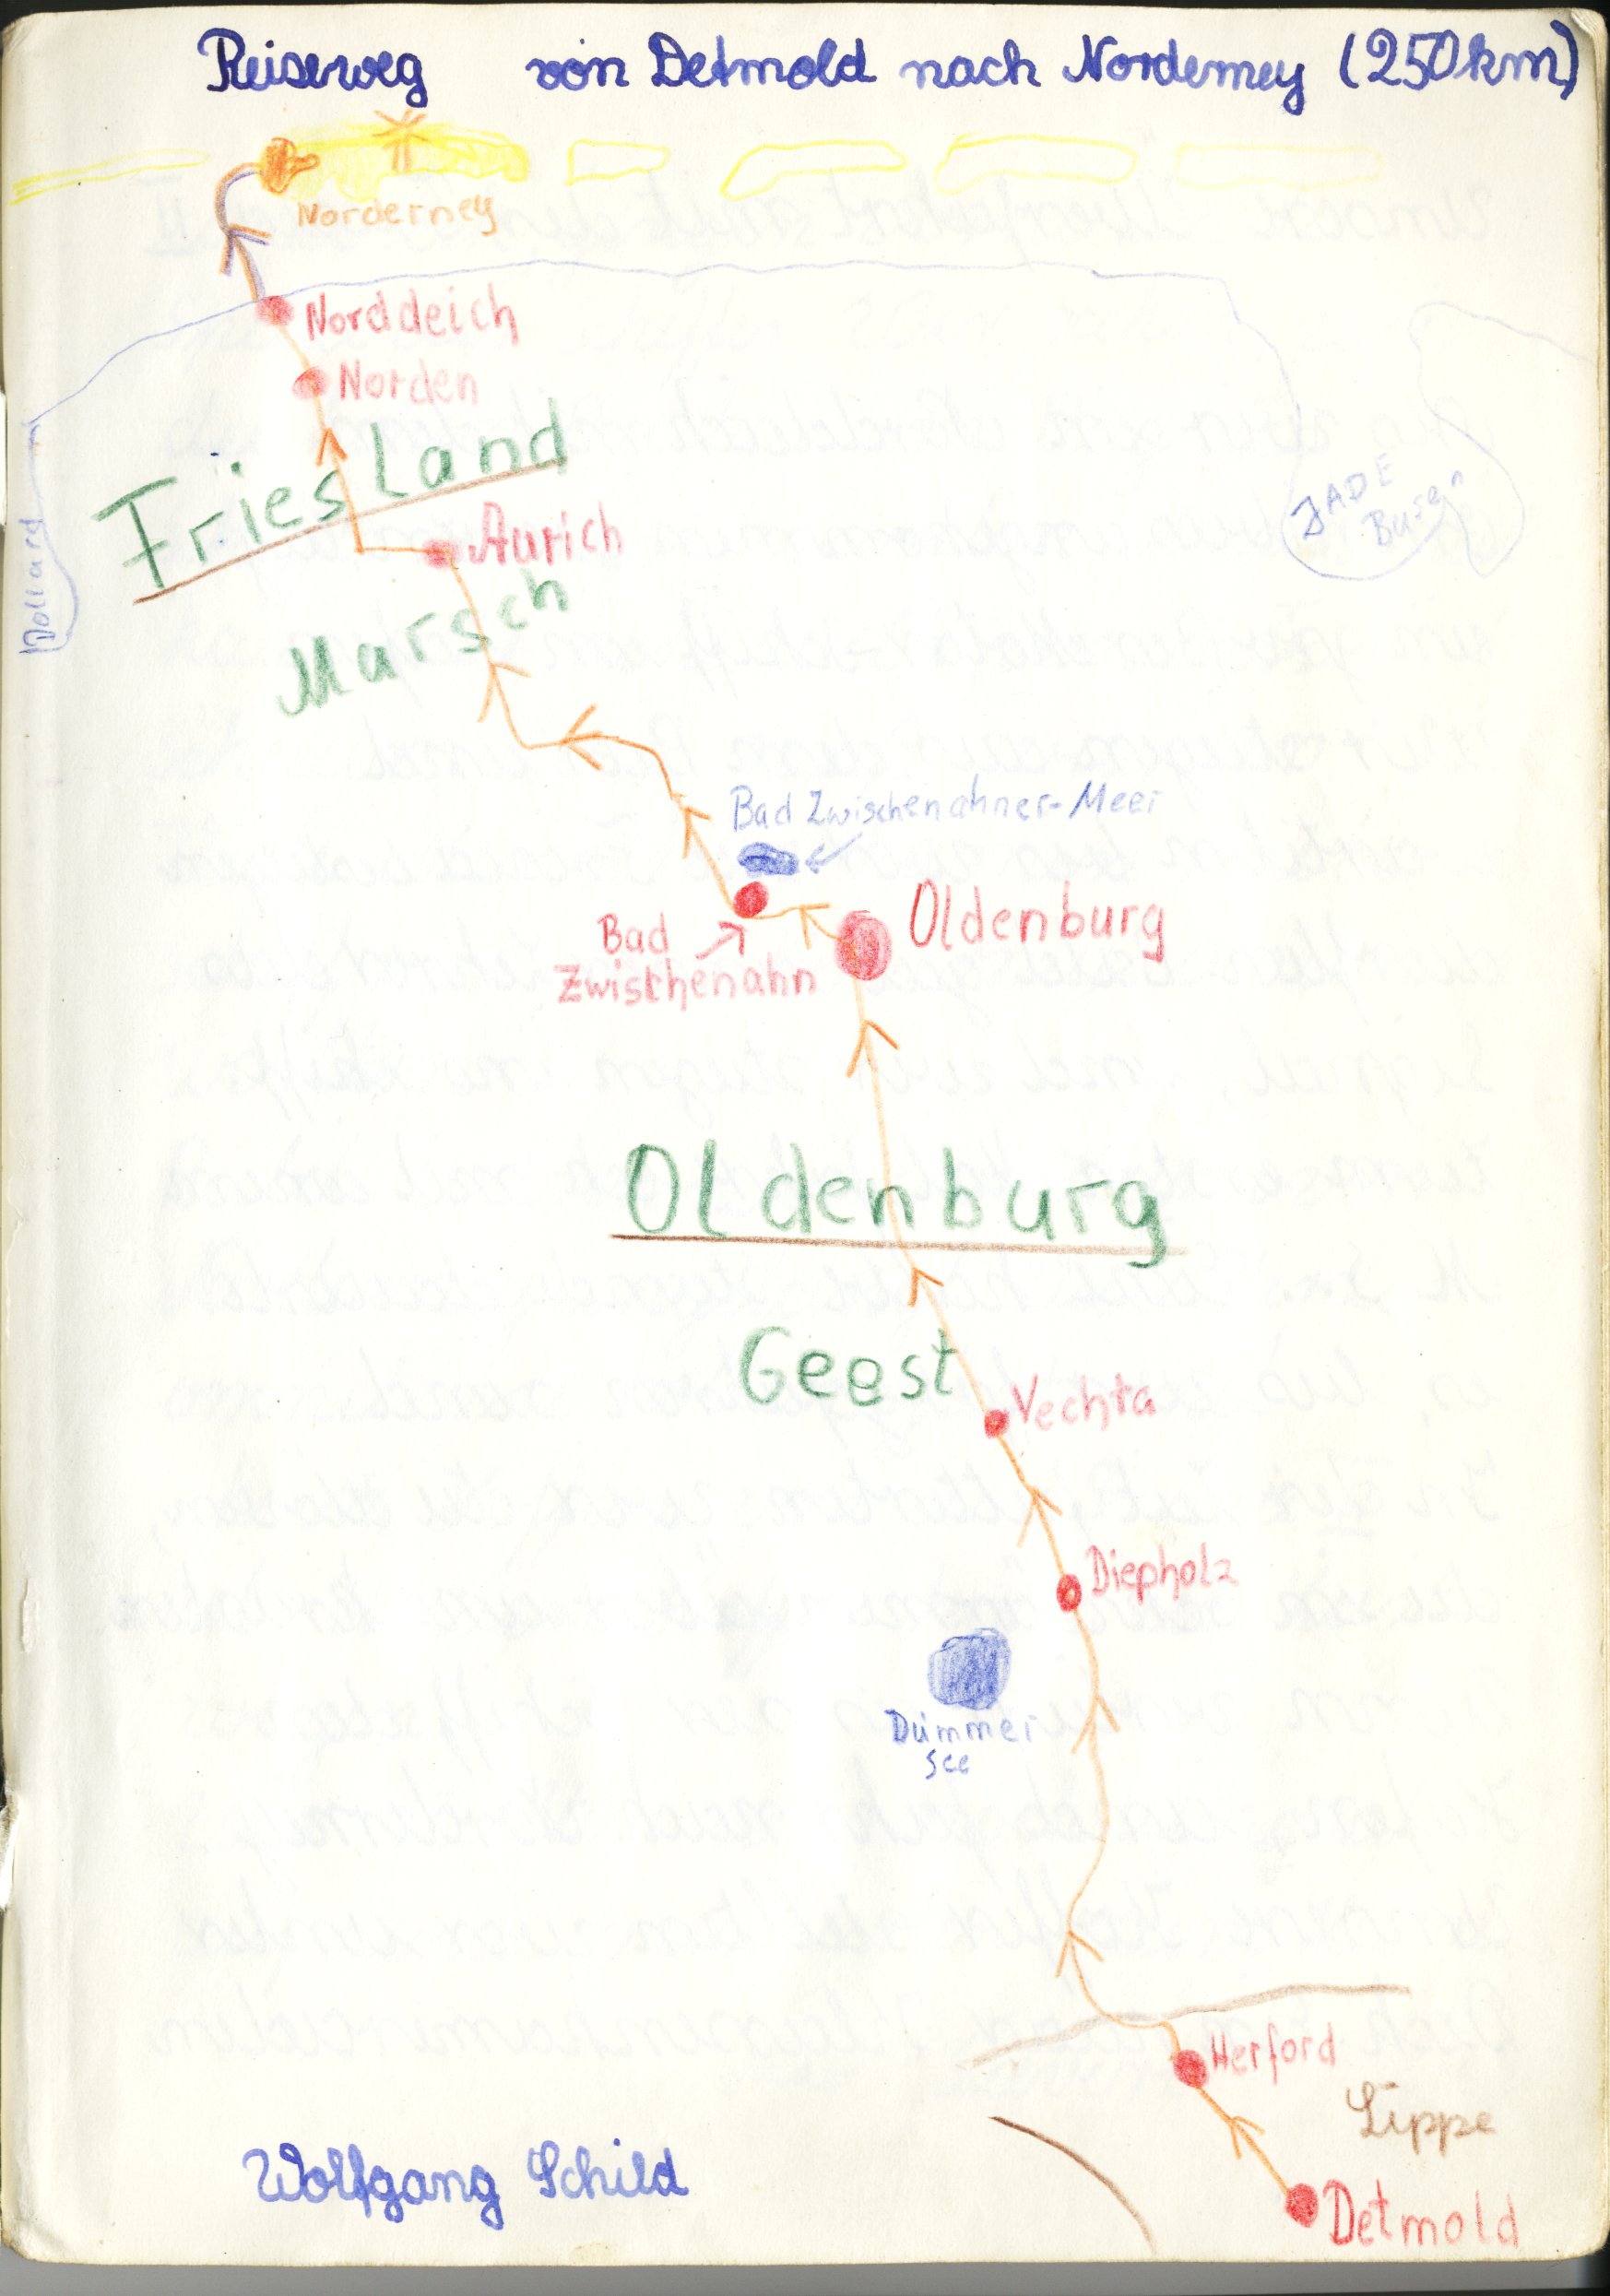 Reiseweg von Detmold nach Norderney (250 km)
Norderney
Norddeich
Norden
Friesland
Aurich
Dollard
JADE
Busen
Marsch
Bad Zwischenahner-Meer
Oldenburg
Bad
Zwischenahn
Oldenburg
Geest
Vechta
Diepholz
Dümmer
See
Herford
Lippe
Wolfgang Schild
Detmold